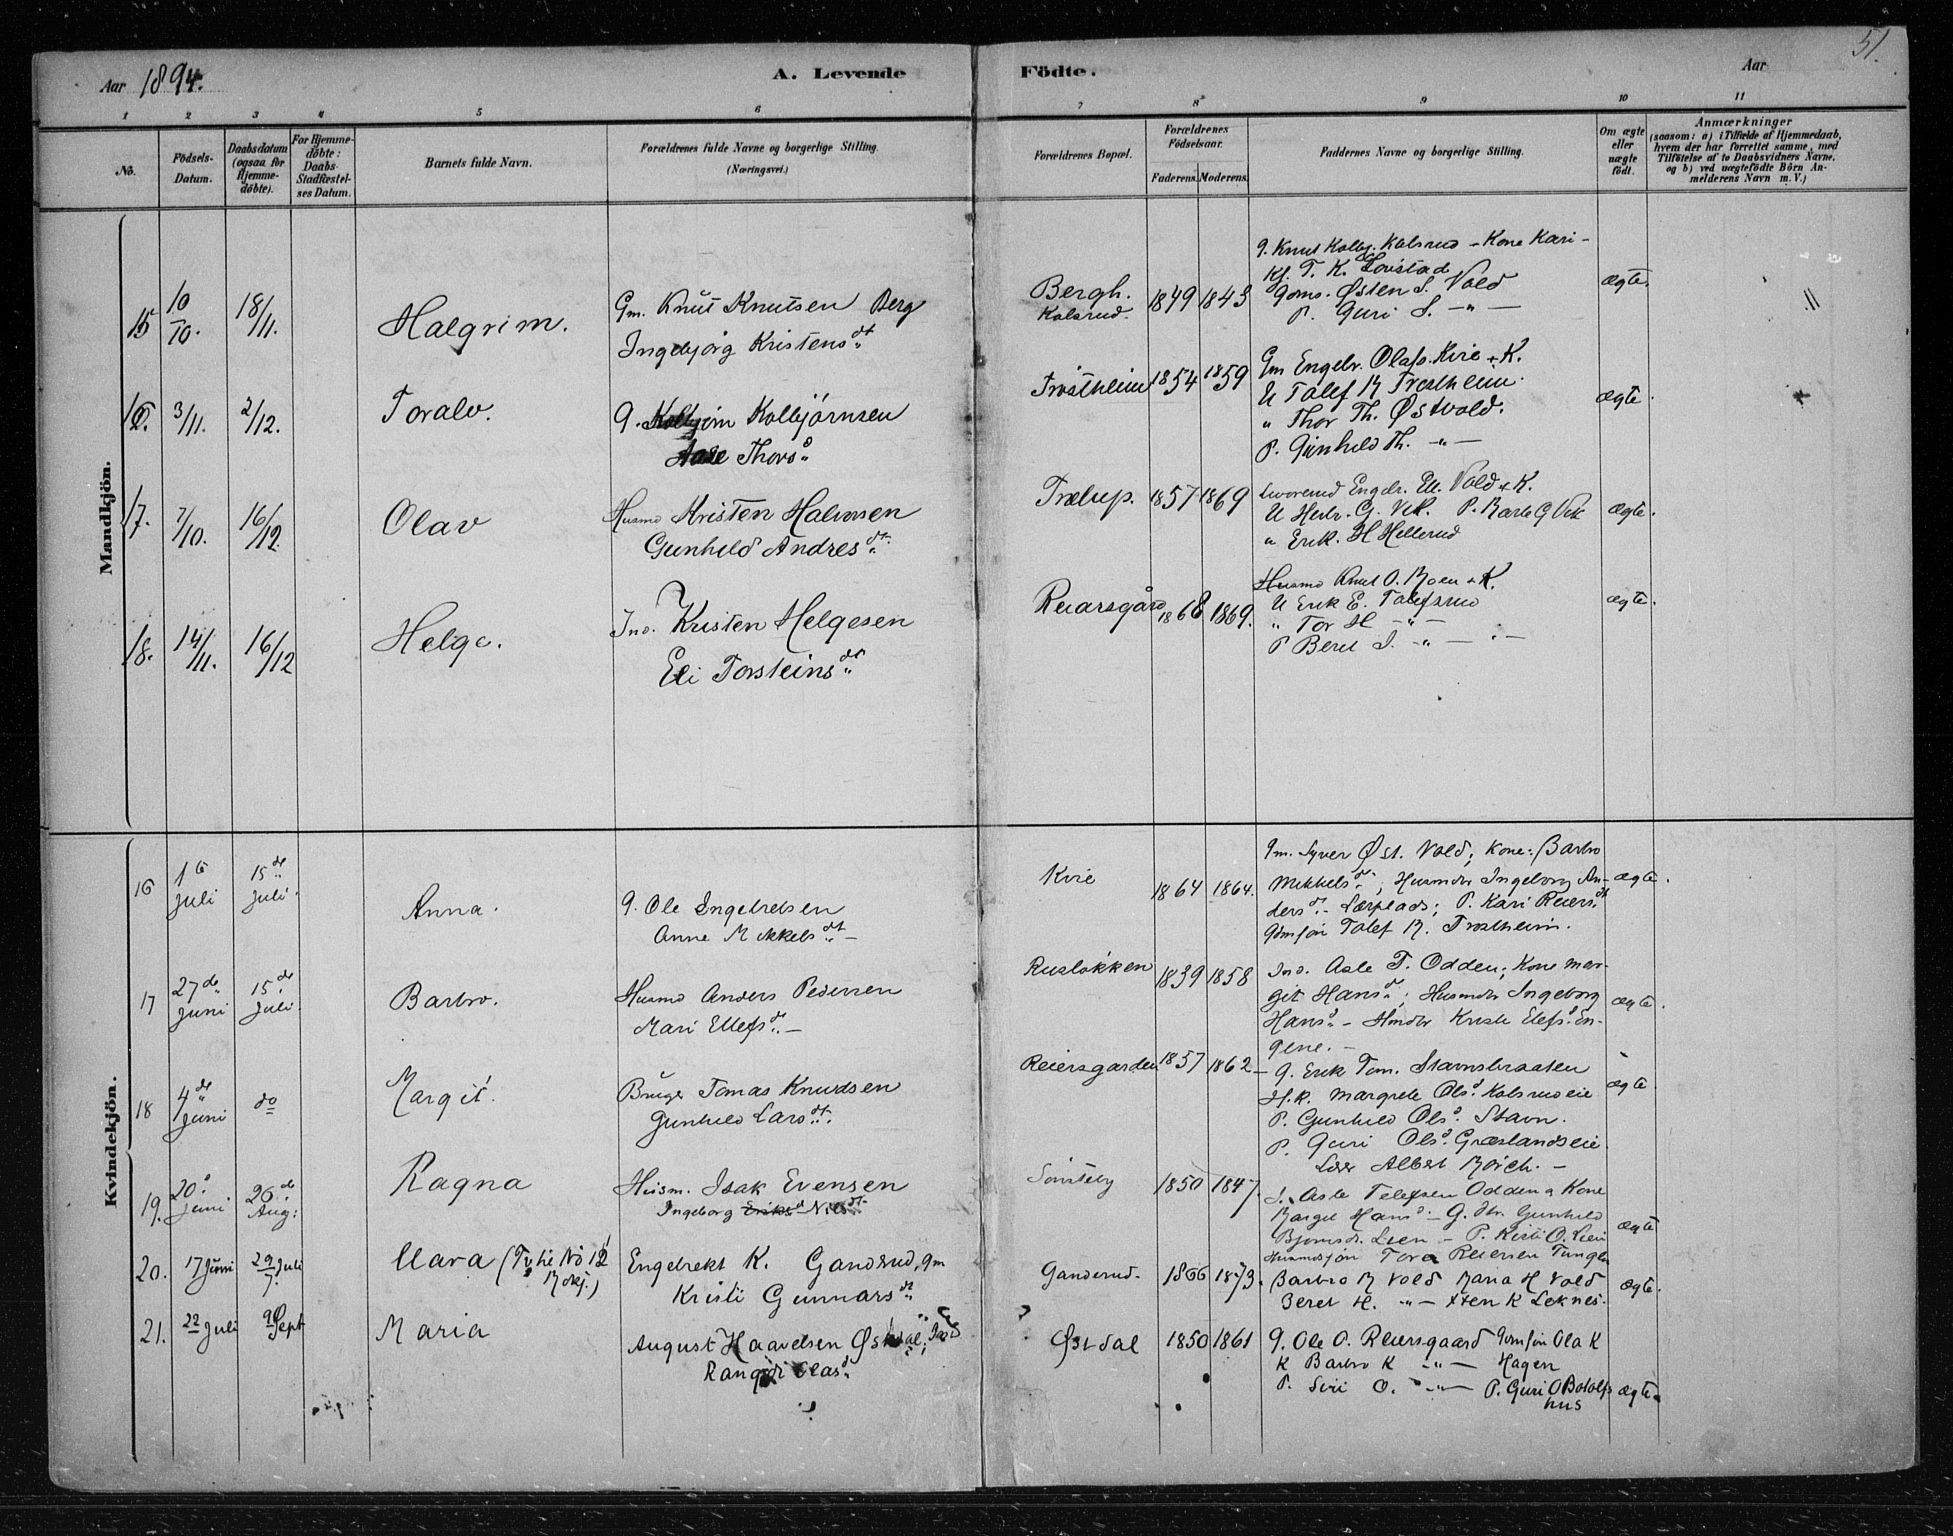 51.
Aar 1894.
A. Levende Födte.
Aar
1 2 3 4 5 6 7 8 9 10 11
No.
Födsels-Datum.
Daabsdatum (ogsaa for Hjemme-döbte).
For Hjemme-döbte: Daabs Stadfæstel-ses Datum.
Barnets fulde Navn.
Forældrenes fulde Navne og borgerlige Stilling.
(Næringsvei.)
Forældrenes Bopæl.
Forældrenes Födselsaar.
Faderens. Moderens.
Faddernes Navne og borgerlige Stilling.
Om ægte eller uægte födt.
Anmærkninger
(saasom: a) i Tilfælde af Hjemmedaab,
hvem der har forrettet samme, med
Tilföielse af to Daabsvidners Navne,
og b) ved uægtefödte Börn An-
melderens Navn m. V.)
Mandkjön.
15 10/10. 18/11. Halgrim.
Gm. Knut Knutsen Berg
Ingebjörg Kristensdt
Bergh. Kolsrud. 1849 1843
G. Knut Kolbj. Kolsrud + Kone Kari -
Kf. T. K. Lovstad
Gdms. Østen S. Vold
P. Guri S. -"-
ægte.
16. 3/11. 2/12. Toralv.
G. Kolbjörn Kolbjörnsen
Aase Thorsd
Tröstheim 1854 1859
Gm Engebr. Olafs. Kvie + K.
U Tolef K Trostheim.
" Thor Th. Østvold.
P. Gunhild Th. -"-
ægte.
17. 7/10. 16/12. Olav
Husmd Kristen Halvorsen
Gunhild Andresdt.
Trælup. 1857 1869
Engebr. Vold + K.
U Herbr. G. Vik. P. Barb G Vik
" Erik. H Hellerud
ægte.
18. 14/11. 16/12 Helge.
Ind. Kristen Helgesen
Eli Torsteinsdt
Reiarsgård 1868 1869.
Husmd Knut O. Moen + K.
U Erik E. Tolefsrud
" Tor H -"-
P Beret S. -"-
ægte.
Kvindekjön.
16 16 juli 15de juli. Anna.
G. Ole Ingebretsen
Anne Mikkelsdt -
Kvie 1864 1864.
Gm. Syver Øst. Vold; Kone: Barbro
Mikkelsd; Husmdtr Ingeborg An-
dersd - Lærplads; P. Kari Reiersdt
Gdmsön Tolef K. Trostheim.
ægte.
17 27de juni 15de juli. Barbro.
Husmd Anders Pedersen
Mari Ellefsd -
Rustökken 1839 1858
Ind. Asle T. Odden; Kone Mar-
git Hansd; Husmdtr Ingeborg
Hansd - Hmdtr Kristi Elefsd En-
gene. -
ægte.
18 4de juni do Margit.
Bruger Tomas Knudsen
Gunhild Larsdt.
Reiersgarden. 1857 1862
- G. Erik Tom. Stavnsbraaten
H.K. Margrete Olsd Kolsrudeie
P. Gunhild Olsd. Stavn.
P. Guri Olsd. Græslandseie
Lær Albert Börch. -
ægte
19. 20. juni 26de Aug: Ragna
Husm. Isak Evensen
Ingeborg Eriksd Nilsdt
Sönsteby 1850 1847
I. Asle Tolefsen Odden & Kone
Margit Hansd - G. dtr. Gunhild
Bjornsdt. Lien - P. Kisti O. Lien
Husmdsjön Tore Reiersen
ægte
20. 17 Juni 29 Juli Mara (Tvilli No 12 Mokj.)
Engebrekt K. Ganderud, Gm
Kristi Gunnarsdt
Ganderud. 1866 1873.
Barbro K Vold Maria H Vold
Beret H. -"- Sten K Leknes.
ægte.
21. 22 Juli 9 Sept Maria
August Haavelsen Østdal, Ind
Rangdi Olasd.
Østdal 1850 1861
G. Ole O. Reiersgaard Gdmsön Ola K
K Barbro K -"- Hagen
P. Siri O. -"- P. Guri O Botolfs
hus
ægte